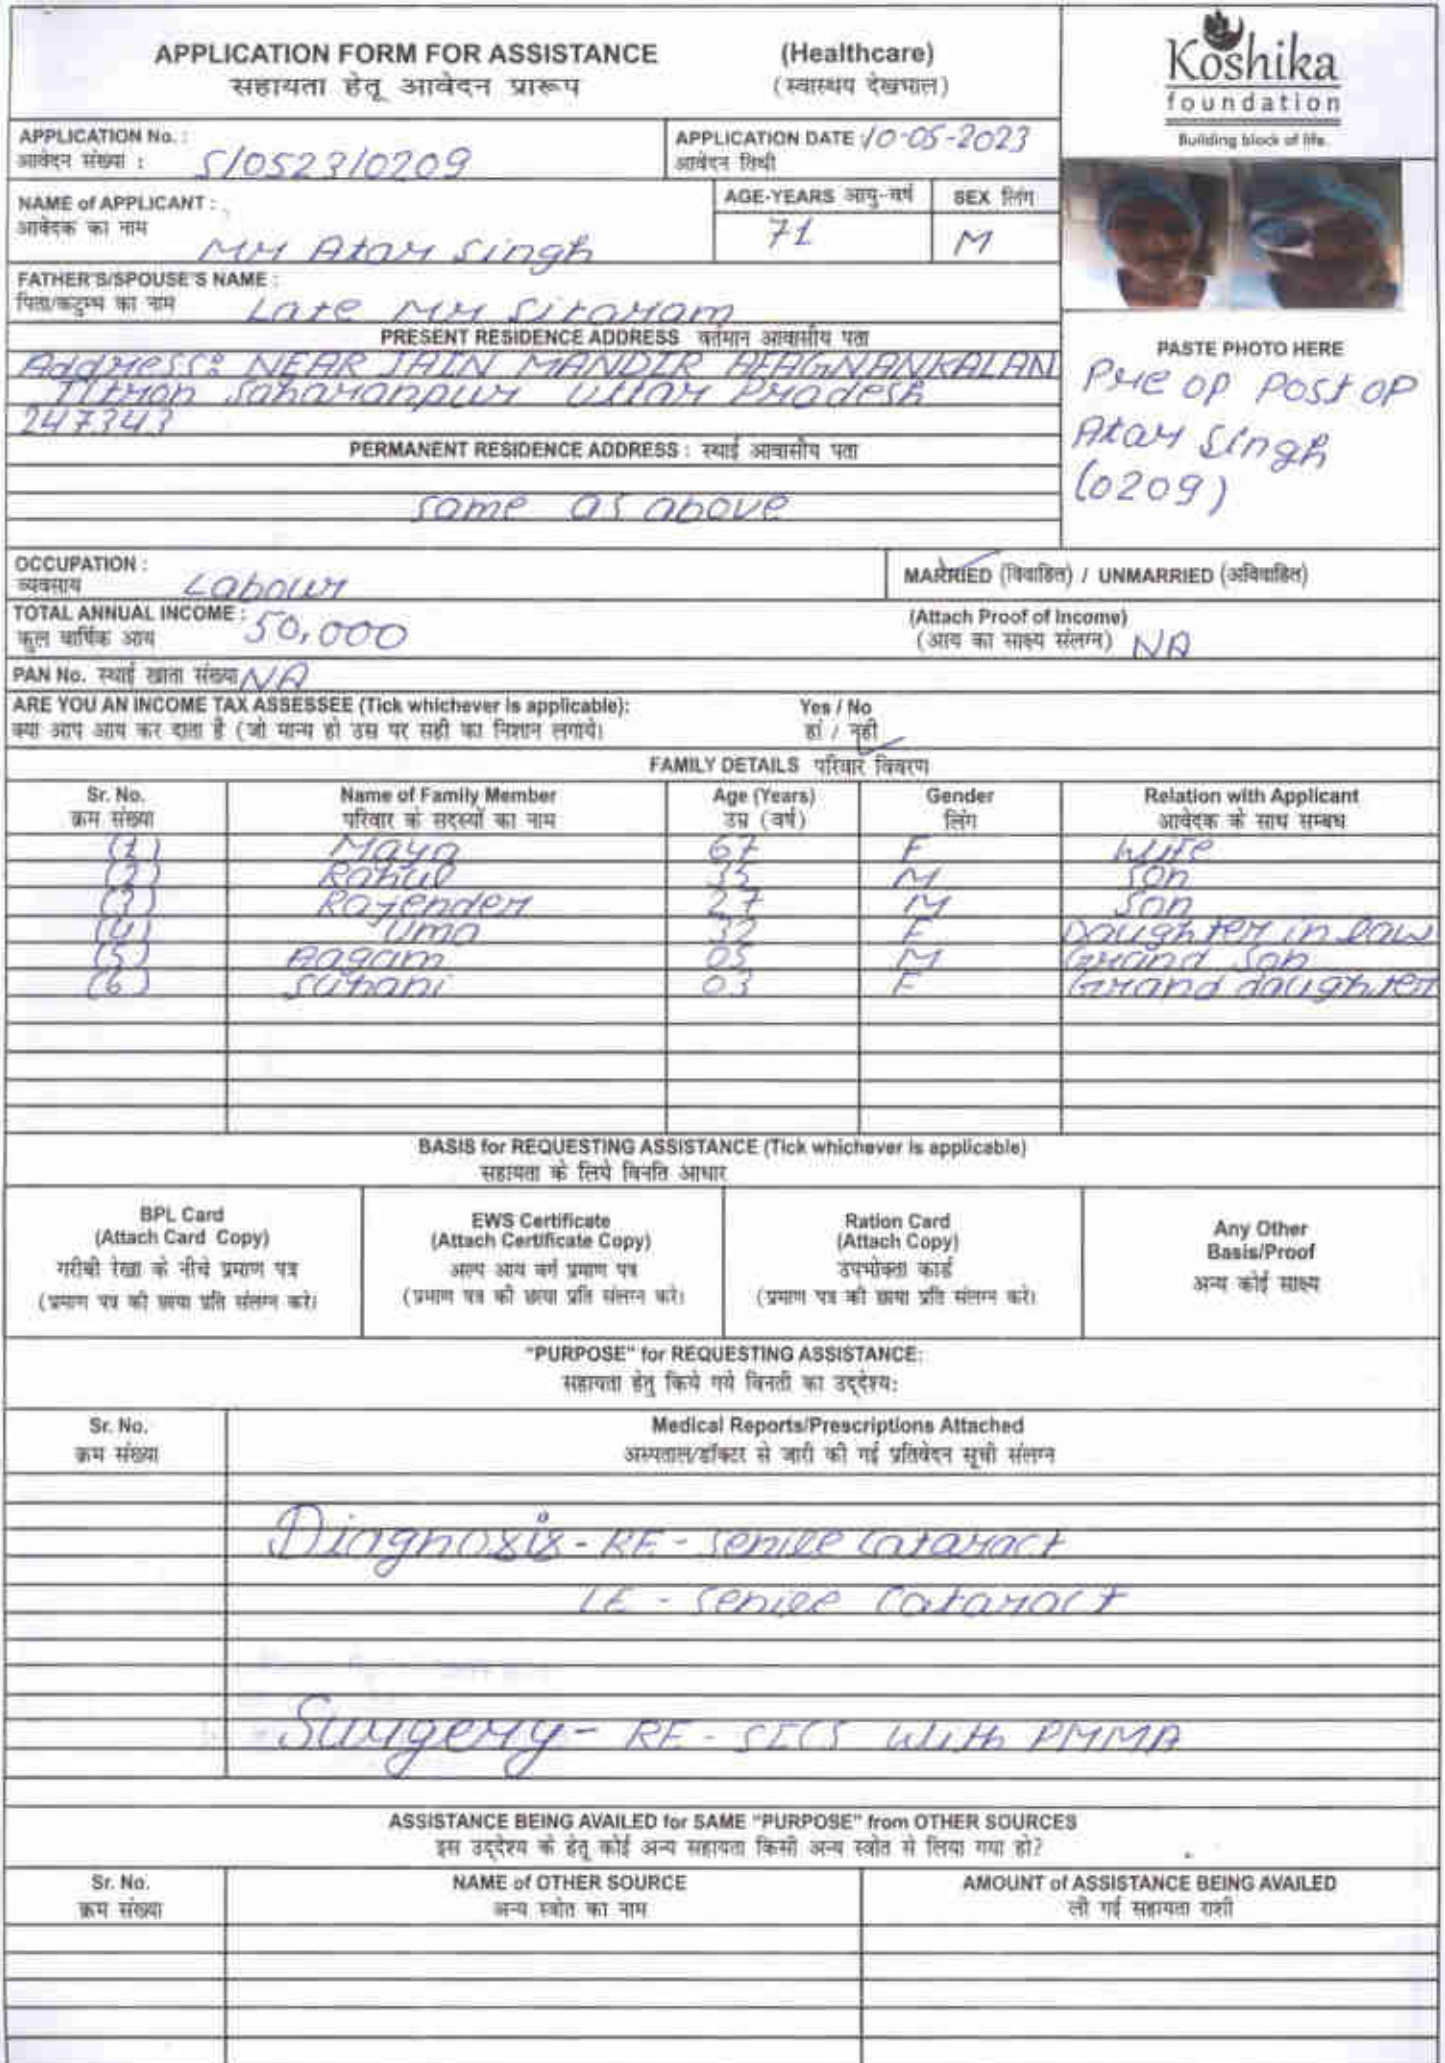 APPLICATION FORM FOR ASSISTANCE (Healthcare)
सहायता हेतू आवेदन प्रारूप (स्वास्थय देखभाल)
Koshika
foundation
Building block of life.
APPLICATION No. : S/0523/0209
आवेदन संख्या :
APPLICATION DATE : 10-05-2023
आवेदन तिथी
NAME of APPLICANT : Mr Atar Singh
आवेदक का नाम
AGE-YEARS आयु-वर्ष 71
SEX लिंग M
FATHER'S/SPOUSE'S NAME : Late Mr Sitaram
पिता/कटुम्ब का नाम
PRESENT RESIDENCE ADDRESS वर्तमान आवासीय पता
Address: NEAR JAIN MANDIR
Titron Saharanpur Uttar Pradesh
247343
PERMANENT RESIDENCE ADDRESS : स्थाई आवासीय पता
same as above
PASTE PHOTO HERE
Pre op Post op
Atar Singh
(0209)
OCCUPATION : Labour
व्यवसाय
MARRIED (विवाहित) / UNMARRIED (अविवाहित)
TOTAL ANNUAL INCOME : 50,000
कुल वार्षिक आय
(Attach Proof of Income)
(आय का साक्ष्य संलग्न) NA
PAN No. स्थाई खाता संख्या NA
ARE YOU AN INCOME TAX ASSESSEE (Tick whichever is applicable): Yes / No
क्या आप आय कर दाता है (जो मान्य हो उस पर सही का निशान लगाये। हां / नही
FAMILY DETAILS परिवार विवरण
Sr. No. Name of Family Member Age (Years) Gender Relation with Applicant
क्रम संख्या परिवार के सदस्यों का नाम उम्र (वर्ष) लिंग आवेदक के साथ सम्बध
(1) Maya 67 F wife
(2) Rahul 35 M Son
(3) Rajender 27 M Son
(4) Uma 32 F Daughter in law
(5) Aagam 05 M Grand Son
(6) Suhani 03 F Grand daughter
BASIS for REQUESTING ASSISTANCE (Tick whichever is applicable)
सहायता के लिये विनति आधार
BPL Card
(Attach Card Copy)
गरीबी रेखा के नीचे प्रमाण पत्र
(प्रमाण पत्र की छाया प्रति संलग्न करे।
EWS Certificate
(Attach Certificate Copy)
अल्प आय वर्ग प्रमाण पत्र
(प्रमाण पत्र की छाया प्रति संलग्न करे।
Ration Card
(Attach Copy)
उपभोक्ता कार्ड
(प्रमाण पत्र की छाया प्रति संलग्न करे।
Any Other
Basis/Proof
अन्य कोई साक्ष्य
"PURPOSE" for REQUESTING ASSISTANCE:
सहायता हेतु किये गये विनती का उद्देश्य:
Sr. No. Medical Reports/Prescriptions Attached
क्रम संख्या अस्पताल/डॉक्टर से जारी की गई प्रतिवेदन सूची संलग्न
Diagnosis - RE - Senile Cataract
LE - Senile Cataract
Surgery - RE - SICS with PMMA
ASSISTANCE BEING AVAILED for SAME "PURPOSE" from OTHER SOURCES
इस उद्देश्य के हेतु कोई अन्य सहायता किसी अन्य स्त्रोत से लिया गया हो?
Sr. No. NAME of OTHER SOURCE AMOUNT of ASSISTANCE BEING AVAILED
क्रम संख्या अन्य स्त्रोत का नाम ली गई सहायता राशी